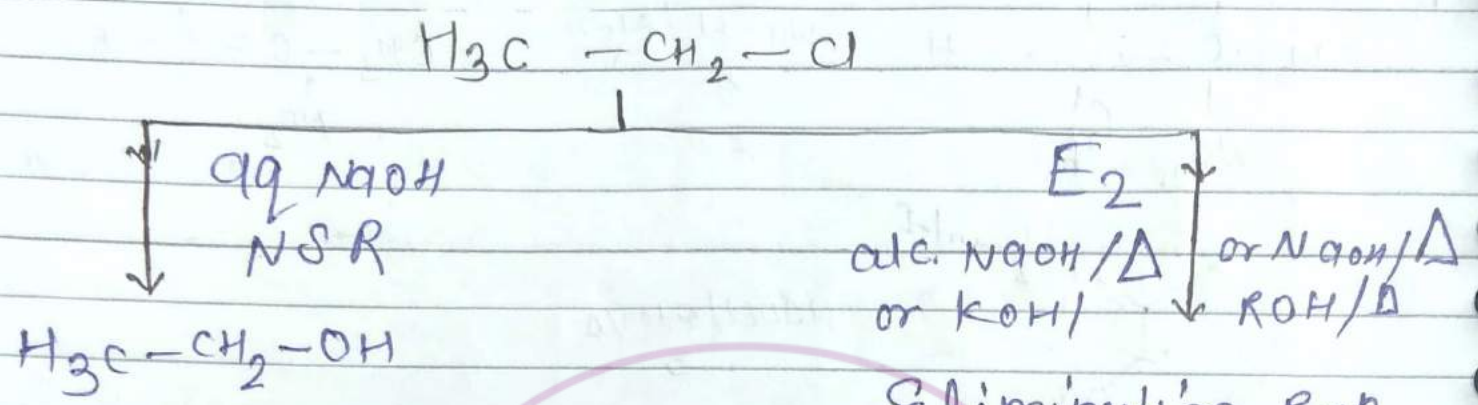 H₃C – CH₂ – Cl
aq NaOH
NSR
E₂
alc. NaOH/Δ or NaOH/Δ
or KOH/ ROH/Δ
H₃C – CH₂ – OH